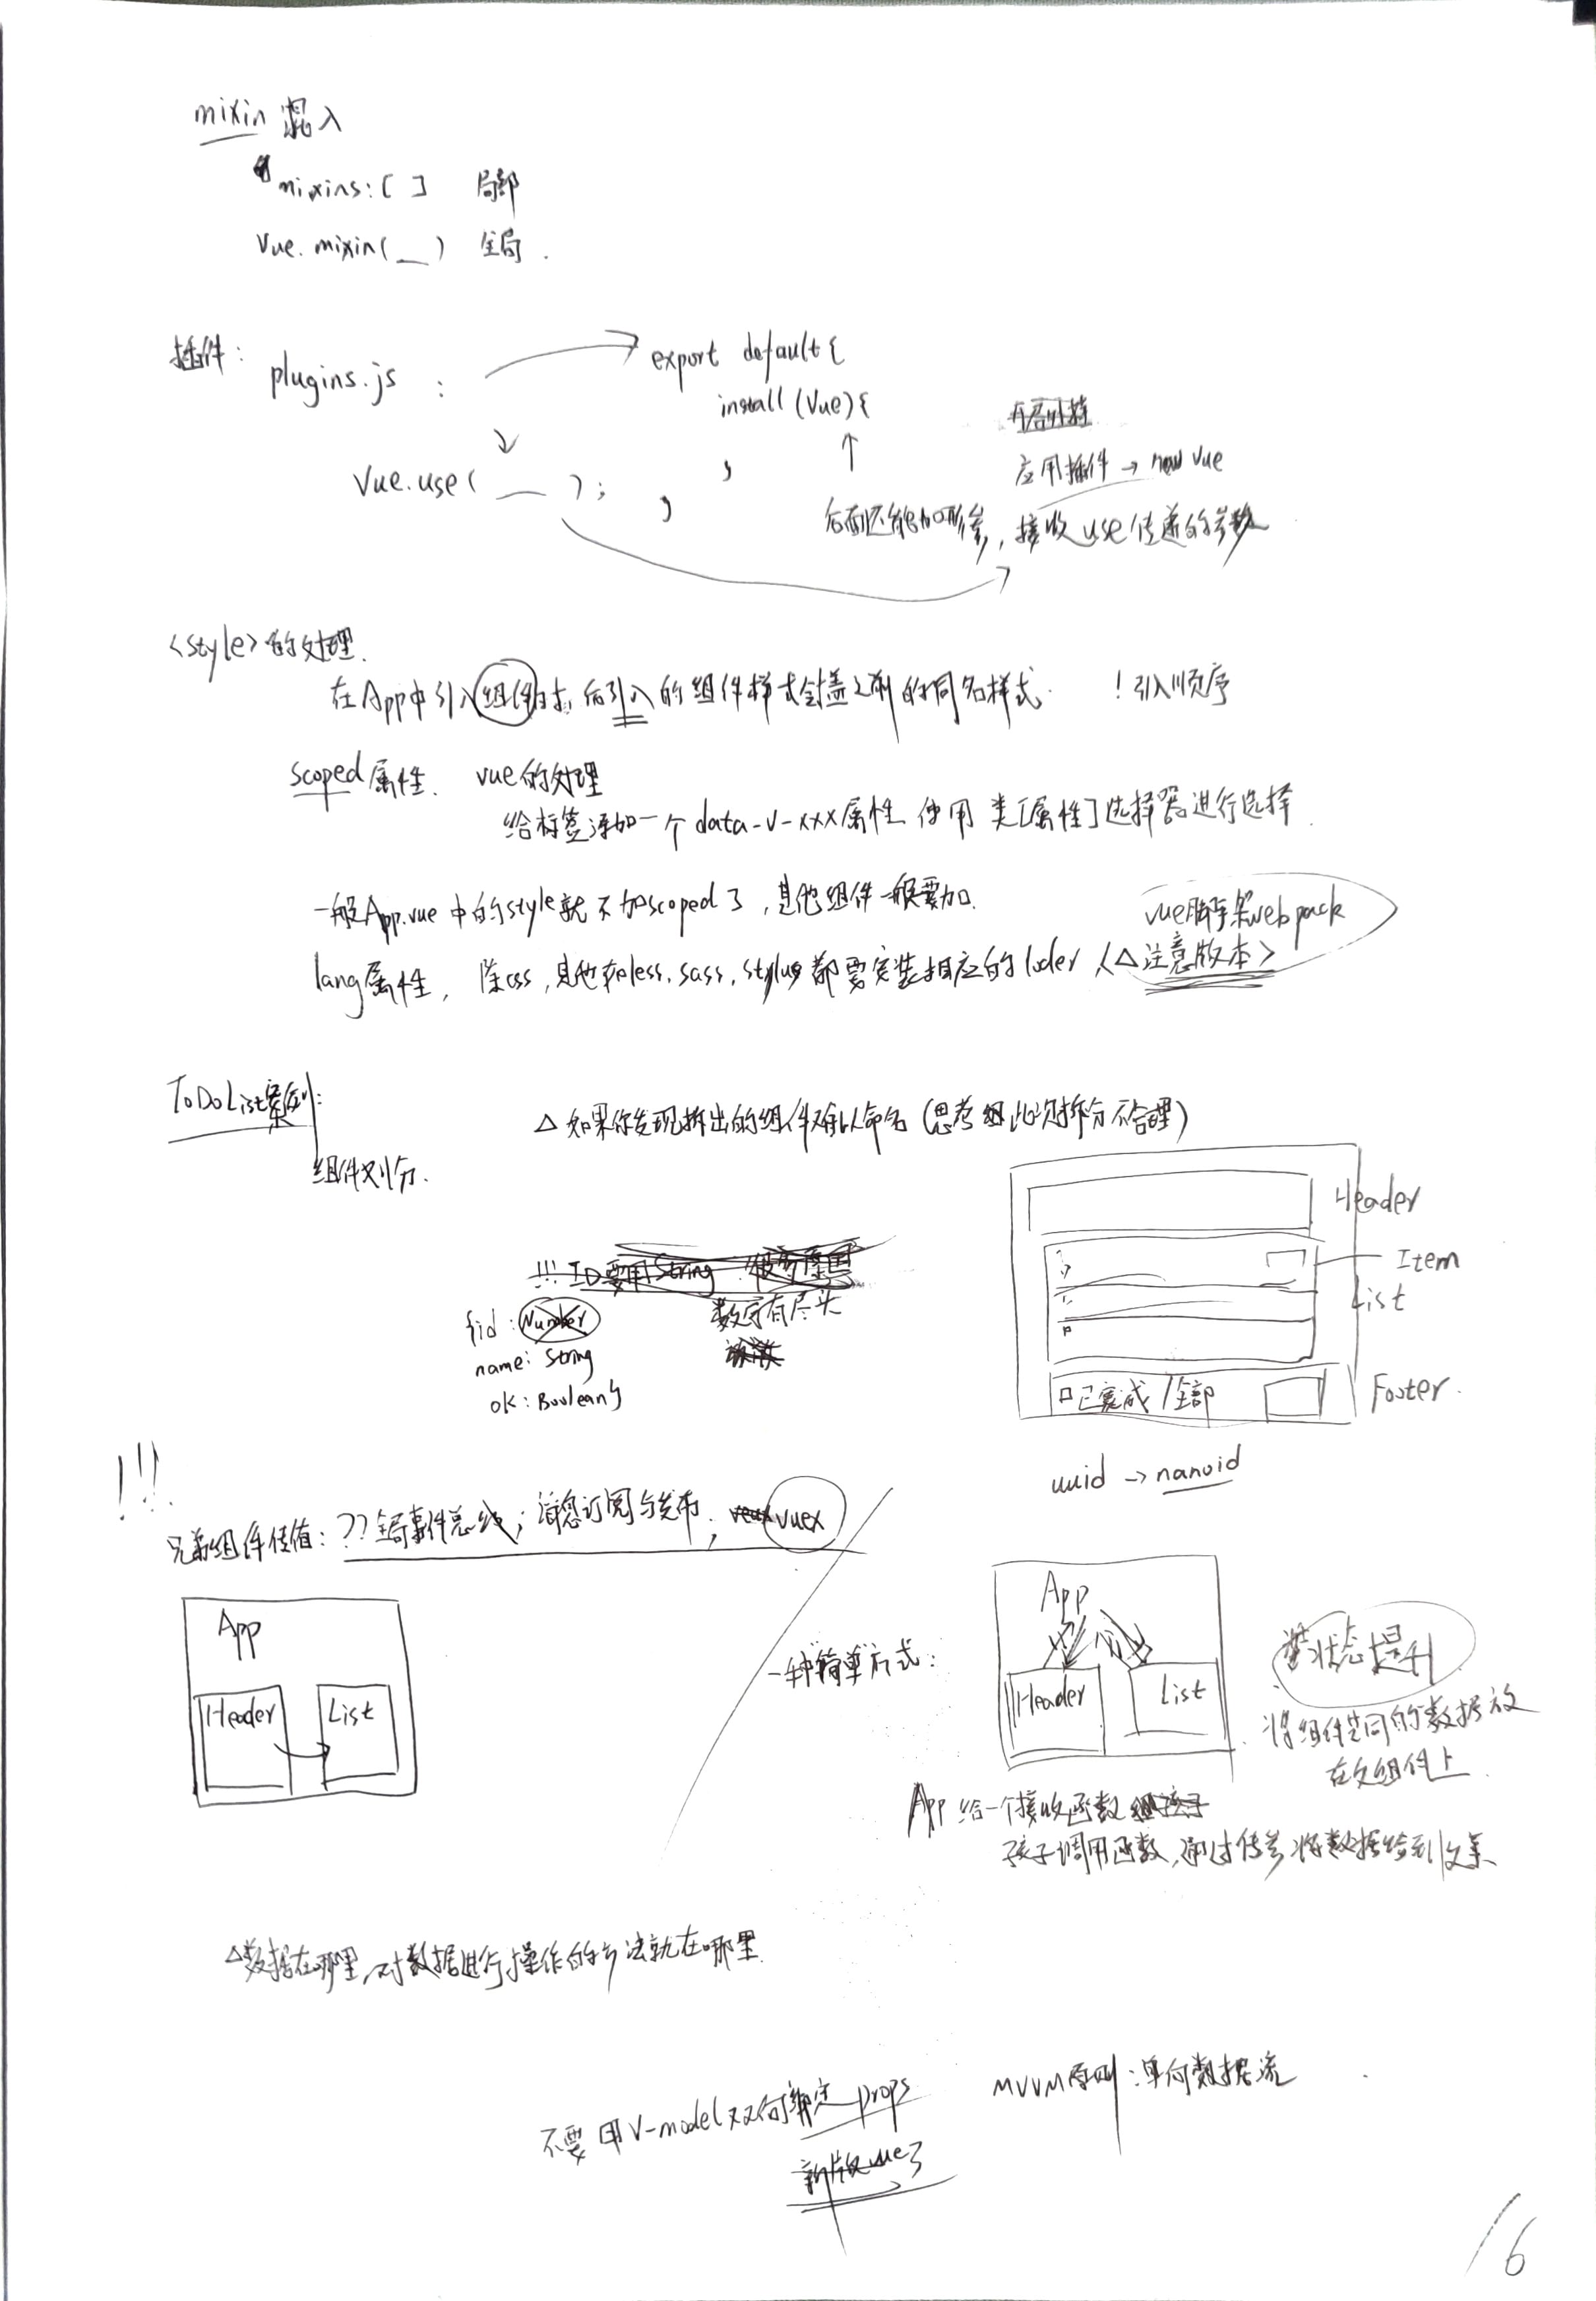 mixin 混入
mixins:[ ] 局部
Vue.mixin(__) 全局.
插件: plugins.js :
export default{
install(Vue){
Vue.use( __ );
应用插件 → new Vue
后面还能加形参, 接收use传递的参数
<style>的处理.
在App中引入组件时, 后引入的组件样式会覆盖之前的同名样式. ! 引入顺序
scoped属性. vue的处理
给标签添加一个data-v-xxx属性 使用 类[属性]选择器进行选择.
一般App.vue中的style就不加scoped了, 其他组件一般要加.
vue脚手架webpack
lang属性, 除css, 其他如less. sass. stylus都要安装相应的loder <△注意版本>
ToDoList案例:
△如果你发现拆出的组件难以命名(思考 此次拆分不合理)
组件划分.
Header
Item
List
□已完成/全部
Footer.
!!! ID要用String
数字有尽头
{id: Number
name: String
ok: Boolean}
uuid → nanoid
!!!
兄弟组件传值: ??全局事件总线; 消息订阅与发布; vuex
App
Header
List
一种简单方式:
App
Header
List
状态提升
将组件共同的数据放
在父组件上.
App 给一个接收函数
孩子调用函数, 通过传参将数据给到父亲
△数据在哪里, 对数据进行操作的方法就在哪里.
不要用V-model双向绑定props
新版vue了
MVVM原则: 单向数据流
16